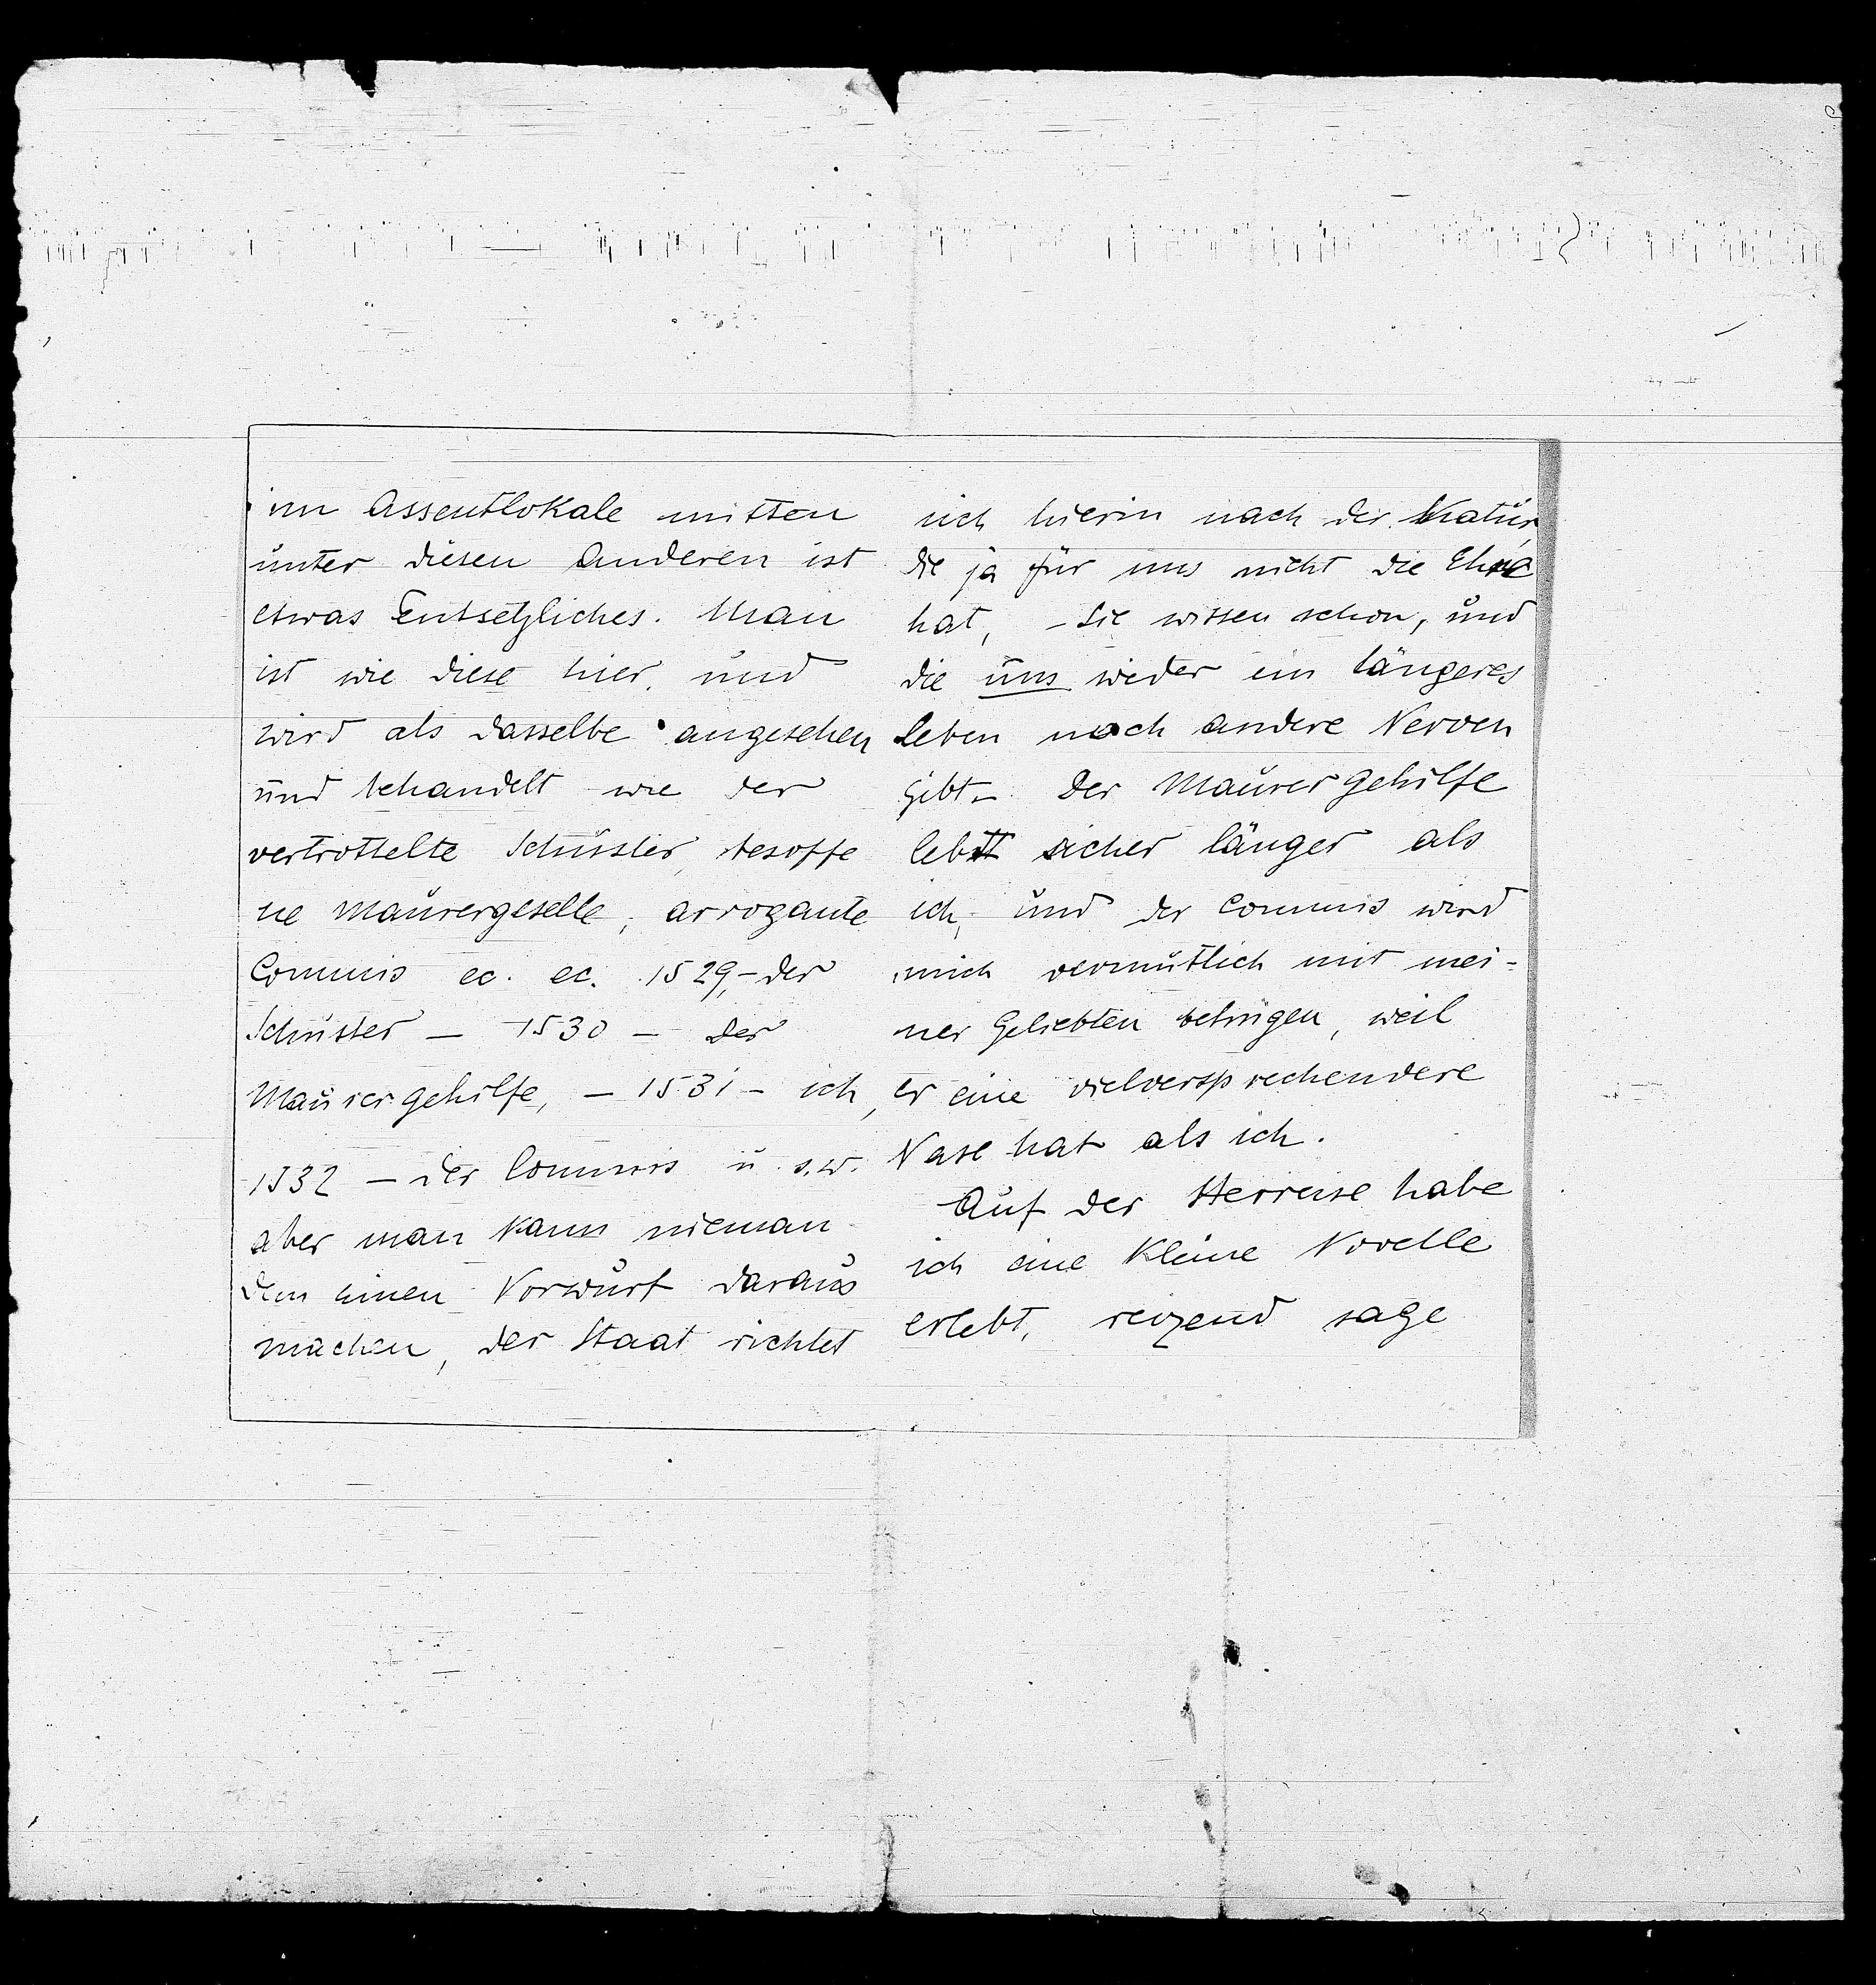 im Assentlokale mitten
unter diesen Anderen ist
etwas Entsetzliches. Man
ist wie diese hier, und
wird als dasselbe angesehen
und behandelt wie der
vertrottelte Schuster, besoffe
ne Maurergeselle, arrogante
Commis ec. ec. 1529,- der
Schuster – 1530 – der
Maurergehilfe, – 1531 – ich,
1532 – der Commis u. s. w.
aber man kann nieman
dem einen Vorwurf daraus
machen, der Staat richtet
sich hierin nach der Natur,
die ja für uns nicht die Ehre
hat, – Sie wissen schon, und
die uns weder ein längeres
Leben noch andere Nerven
gibt. – Der Maurergehilfe
lebt sicher länger als
ich, und der Commis wird
mich vermutlich mit mei-
ner Geliebten betrügen, weil
er eine vielversprechendere
Nase hat als ich.
Auf der Herreise habe
ich eine kleine Novelle
erlebt, reizend sage